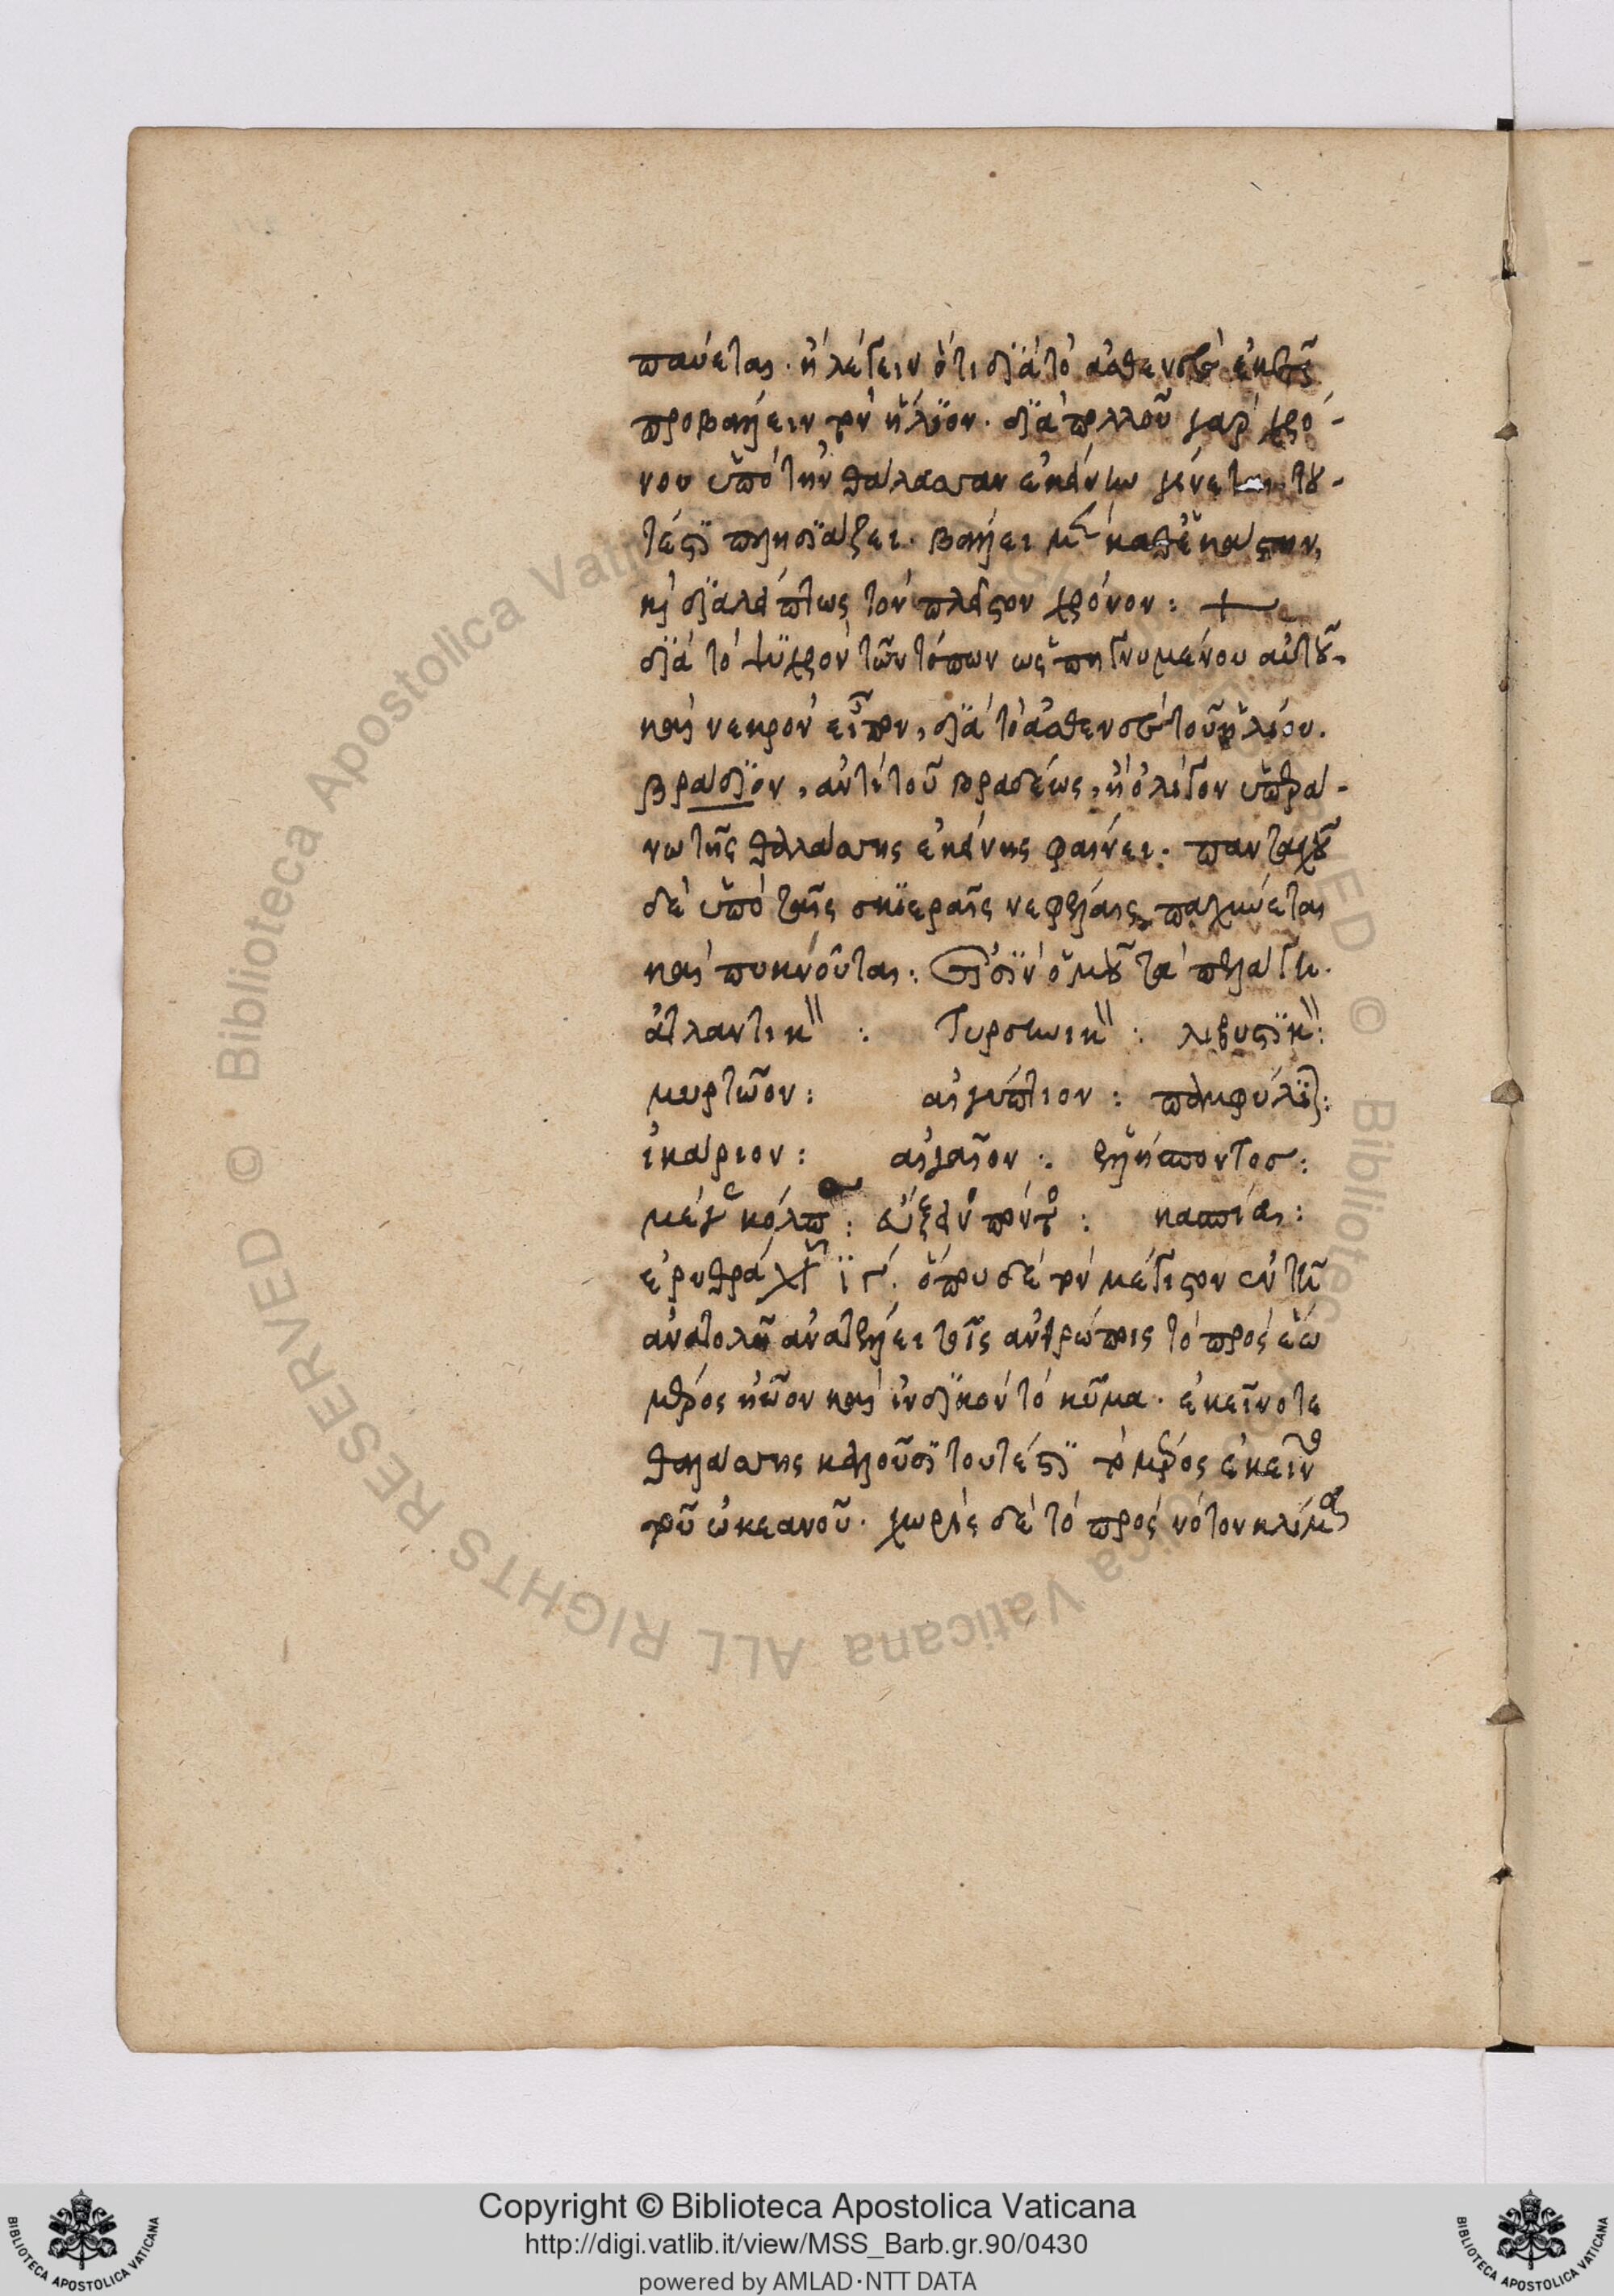 παύεται. ἢ λέγειν ὅτι διὰ τὸ ἀσθενὲς ἐκεῖσε
προβάλλειν τὸν ἥλιον. διὰ πολλοῦ γὰρ χρό-
νου ὑπὸ τὴν θάλασσαν ἐκείνην γίνεται, του-
τέστι πλησιάζει. βάλλει μὲν καθεκάστην,
καὶ διαλείπτως τὸν πλεῖστον χρόνον: +
διὰ τὸ ψυχρὸν τῶν τόπων ὡς πηγνυμένου αὐτοῦ.
καὶ νεκρὸν εἶπον, διὰ τὸ ἀσθενὲς τοῦ ἡλίου.
βράδιον, ἀντὶ τοῦ βραδέως, ἢ ὀλίγον ὑπερά-
νω τῆς θαλάσσης ἐκείνης φαίνει. πανταχοῦ
δὲ ὑπὸ ταῖς σκιεραῖς νεφέλαις παχύνεται
καὶ πυκνοῦται: εἰσὶν ὁμοῦ τὰ πελάγη.
ἀτλαντικ": τυρσηνικ": λιβυστικ":
μυρτῶον: αἰγύπτιον: παμφύλιον:
ἰκάριον: αἰγαῖον: ἑλλήσποντος:
μέγας κόλπος: εὔξεινος πόντος: κασπίας:
ἐρυθρά ϊγ. ὅπου δὲ τὸν μέγιστον ἐν τῇ
ἀνατολῇ ἀνατέλλει τοῖς ἀνθρώποις τὸ πρὸς ἕω
μέρος ἠῶον καὶ ἰνδικὸν τὸ κῦμα. ἐκεῖνο τε
θαλάσσης καλοῦσι τουτέστι τὸ μέρος ἐκεῖνο
τοῦ ὠκεανοῦ. χωρὶς δὲ τὸ πρὸς νότον κλίμα
Copyright © Biblioteca Apostolica Vaticana
http://digi.vatlib.it/view/MSS_Barb.gr.90/0430
powered by AMLAD·NTT DATA
BIBLIOTECA APOSTOLICA VATICANA
BIBLIOTECA APOSTOLICA VATICANA